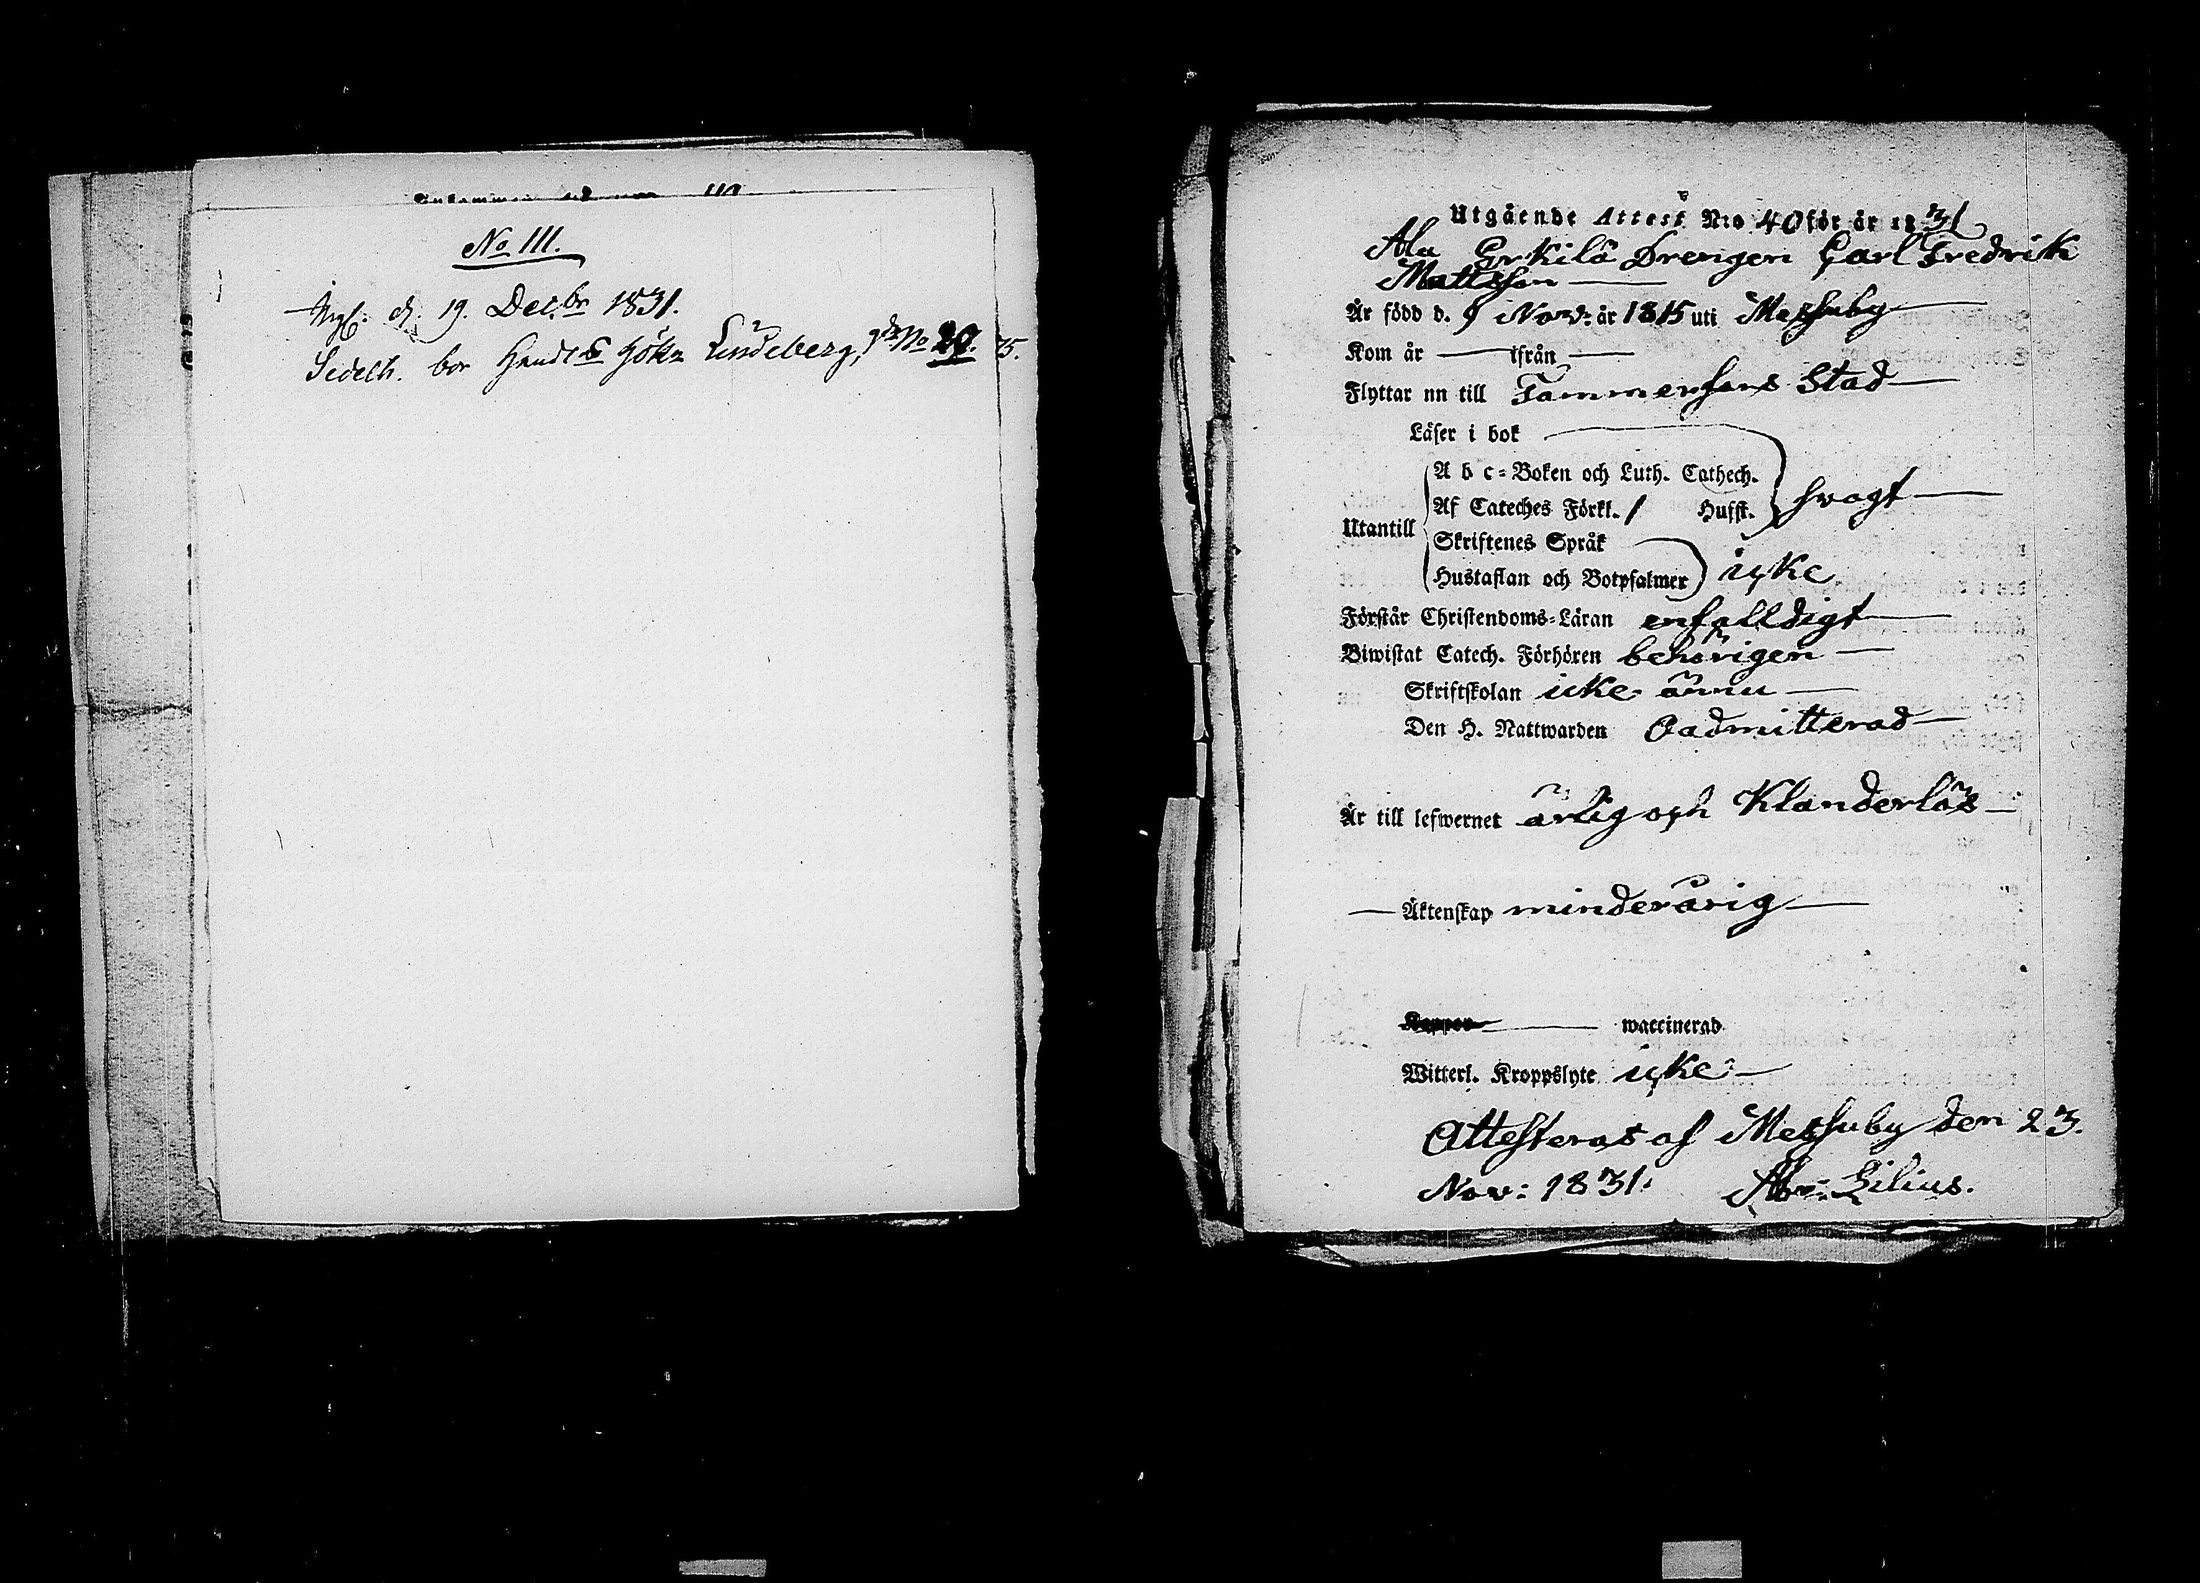 No 111.
d. 19. Decbr 1831.
bor Handl Hökr Lindeberg, No 29.
Utgående Attest N:o 40 för år 1831
Ala Erkilä Drengen Carl Fredrik
Mattsson
Är född d. 9 Nov: år 1815 uti Messuby
Kom år — ifrån —
Flyttar nu till Tammerfors Stad
Läser i bok
A b c-Boken och Luth. Cathech.
Af Cateches Förkl. / Husst.
svagt
Utantill
Skriftenes Språk
Hustaflan och Botpsalmer
icke
Förstår Christendoms-Läran enfalldigt
Biwistat Catech. Förhören behörigen
Skriftskolan icke ännu
Den H. Nattwarden Oadmitterad
Är till lefwernet ärlig och Klanderlös
— Äktenskap minderårig
Koppor — waccinerad
Witterl. Kroppslyte icke
Attesteras af Messuby den 23.
Nov: 1831. Abr: Lilius.